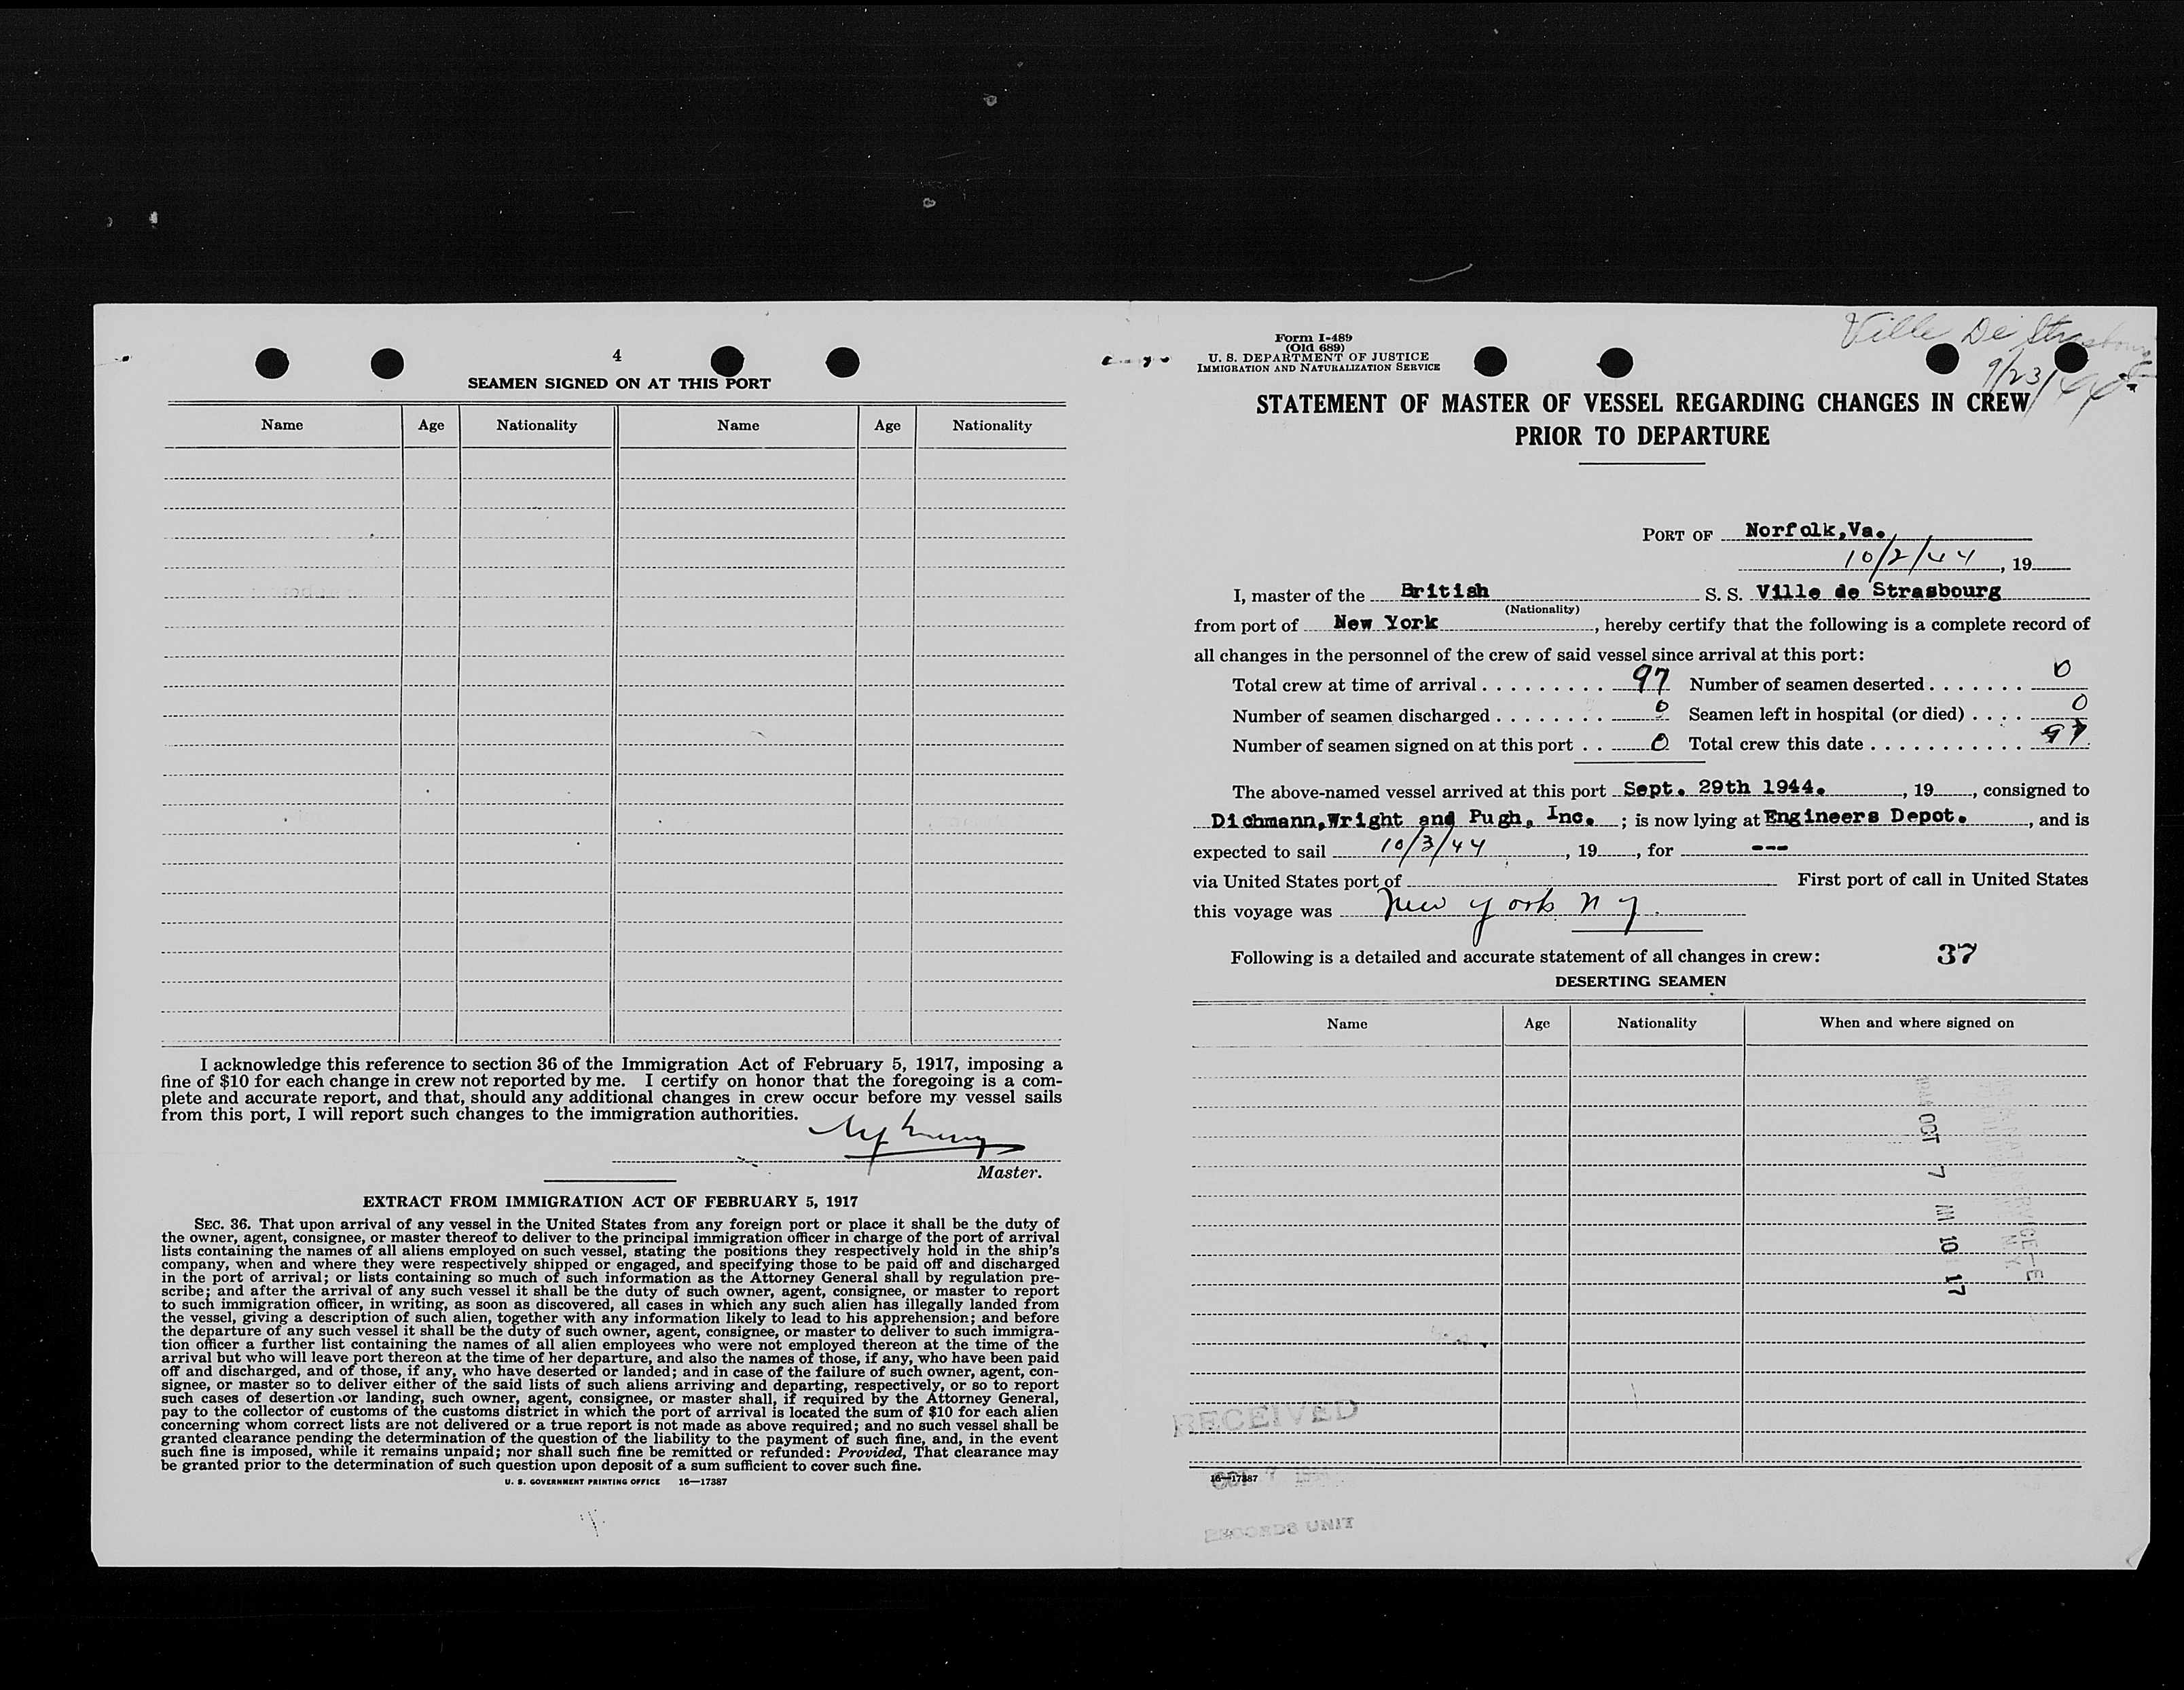 4
SEAMEN SIGNED ON AT THIS PORT
Name Age Nationality Name Age Nationality
I acknowledge this reference to section 36 of the Immigration Act of February 5, 1917, imposing a
fine of $10 for each change in crew not reported by me. I certify on honor that the foregoing is a com-
plete and accurate report, and that, should any additional changes in crew occur before my vessel sails
from this port, I will report such changes to the immigration authorities.
Master.
EXTRACT FROM IMMIGRATION ACT OF FEBRUARY 5, 1917
SEC. 36. That upon arrival of any vessel in the United States from any foreign port or place it shall be the duty of
the owner, agent, consignee, or master thereof to deliver to the principal immigration officer in charge of the port of arrival
lists containing the names of all aliens employed on such vessel, stating the positions they respectively hold in the ship's
company, when and where they were respectively shipped or engaged, and specifying those to be paid off and discharged
in the port of arrival; or lists containing so much of such information as the Attorney General shall by regulation pre-
scribe; and after the arrival of any such vessel it shall be the duty of such owner, agent, consignee, or master to report
to such immigration officer, in writing, as soon as discovered, all cases in which any such alien has illegally landed from
the vessel, giving a description of such alien, together with any information likely to lead to his apprehension; and before
the departure of any such vessel it shall be the duty of such owner, agent, consignee, or master to deliver to such immigra-
tion officer a further list containing the names of all alien employees who were not employed thereon at the time of the
arrival but who will leave port thereon at the time of her departure, and also the names of those, if any, who have been paid
off and discharged, and of those, if any, who have deserted or landed; and in case of the failure of such owner, agent, con-
signee, or master so to deliver either of the said lists of such aliens arriving and departing, respectively, or so to report
such cases of desertion or landing, such owner, agent, consignee, or master shall, if required by the Attorney General,
pay to the collector of customs of the customs district in which the port of arrival is located the sum of $10 for each alien
concerning whom correct lists are not delivered or a true report is not made as above required; and no such vessel shall be
granted clearance pending the determination of the question of the liability to the payment of such fine, and, in the event
such fine is imposed, while it remains unpaid; nor shall such fine be remitted or refunded: Provided, That clearance may
be granted prior to the determination of such question upon deposit of a sum sufficient to cover such fine.
U. S. GOVERNMENT PRINTING OFFICE 16—17387
Form I-489
(Old 689)
U. S. DEPARTMENT OF JUSTICE
IMMIGRATION AND NATURALIZATION SERVICE
Ville De Strasbourg
9/23/44
STATEMENT OF MASTER OF VESSEL REGARDING CHANGES IN CREW
PRIOR TO DEPARTURE
PORT OF Norfolk,Va.
10/2/44, 19
I, master of the British S. S. Ville de Strasbourg
(Nationality)
from port of New York, hereby certify that the following is a complete record of
all changes in the personnel of the crew of said vessel since arrival at this port:
Total crew at time of arrival 97 Number of seamen deserted 0
Number of seamen discharged 0 Seamen left in hospital (or died) 0
Number of seamen signed on at this port 0 Total crew this date 97
The above-named vessel arrived at this port Sept. 29th 1944., 19, consigned to
Dichmann,Wright and Pugh, Inc.; is now lying at Engineers Depot., and is
expected to sail 10/3/44, 19, for ---
via United States port of First port of call in United States
this voyage was New York N Y.
Following is a detailed and accurate statement of all changes in crew: 37
DESERTING SEAMEN
Name Age Nationality When and where signed on
OCT 7 AM 10 17
RECEIVED
16—17387
RECORDS UNIT